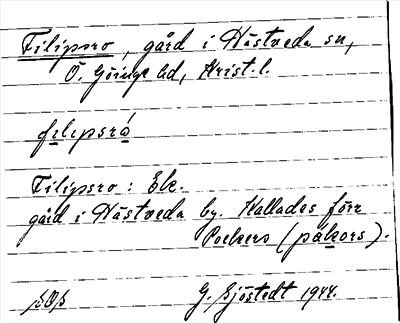 Filipsro, gård i Hästveda sn,
Ö. Göinge hd, Krist. l.
filipsró
Filipsro: Ek.
gård i Hästveda by. Kallades förr
Pockers (påkors).
G. Sjöstedt 1944.